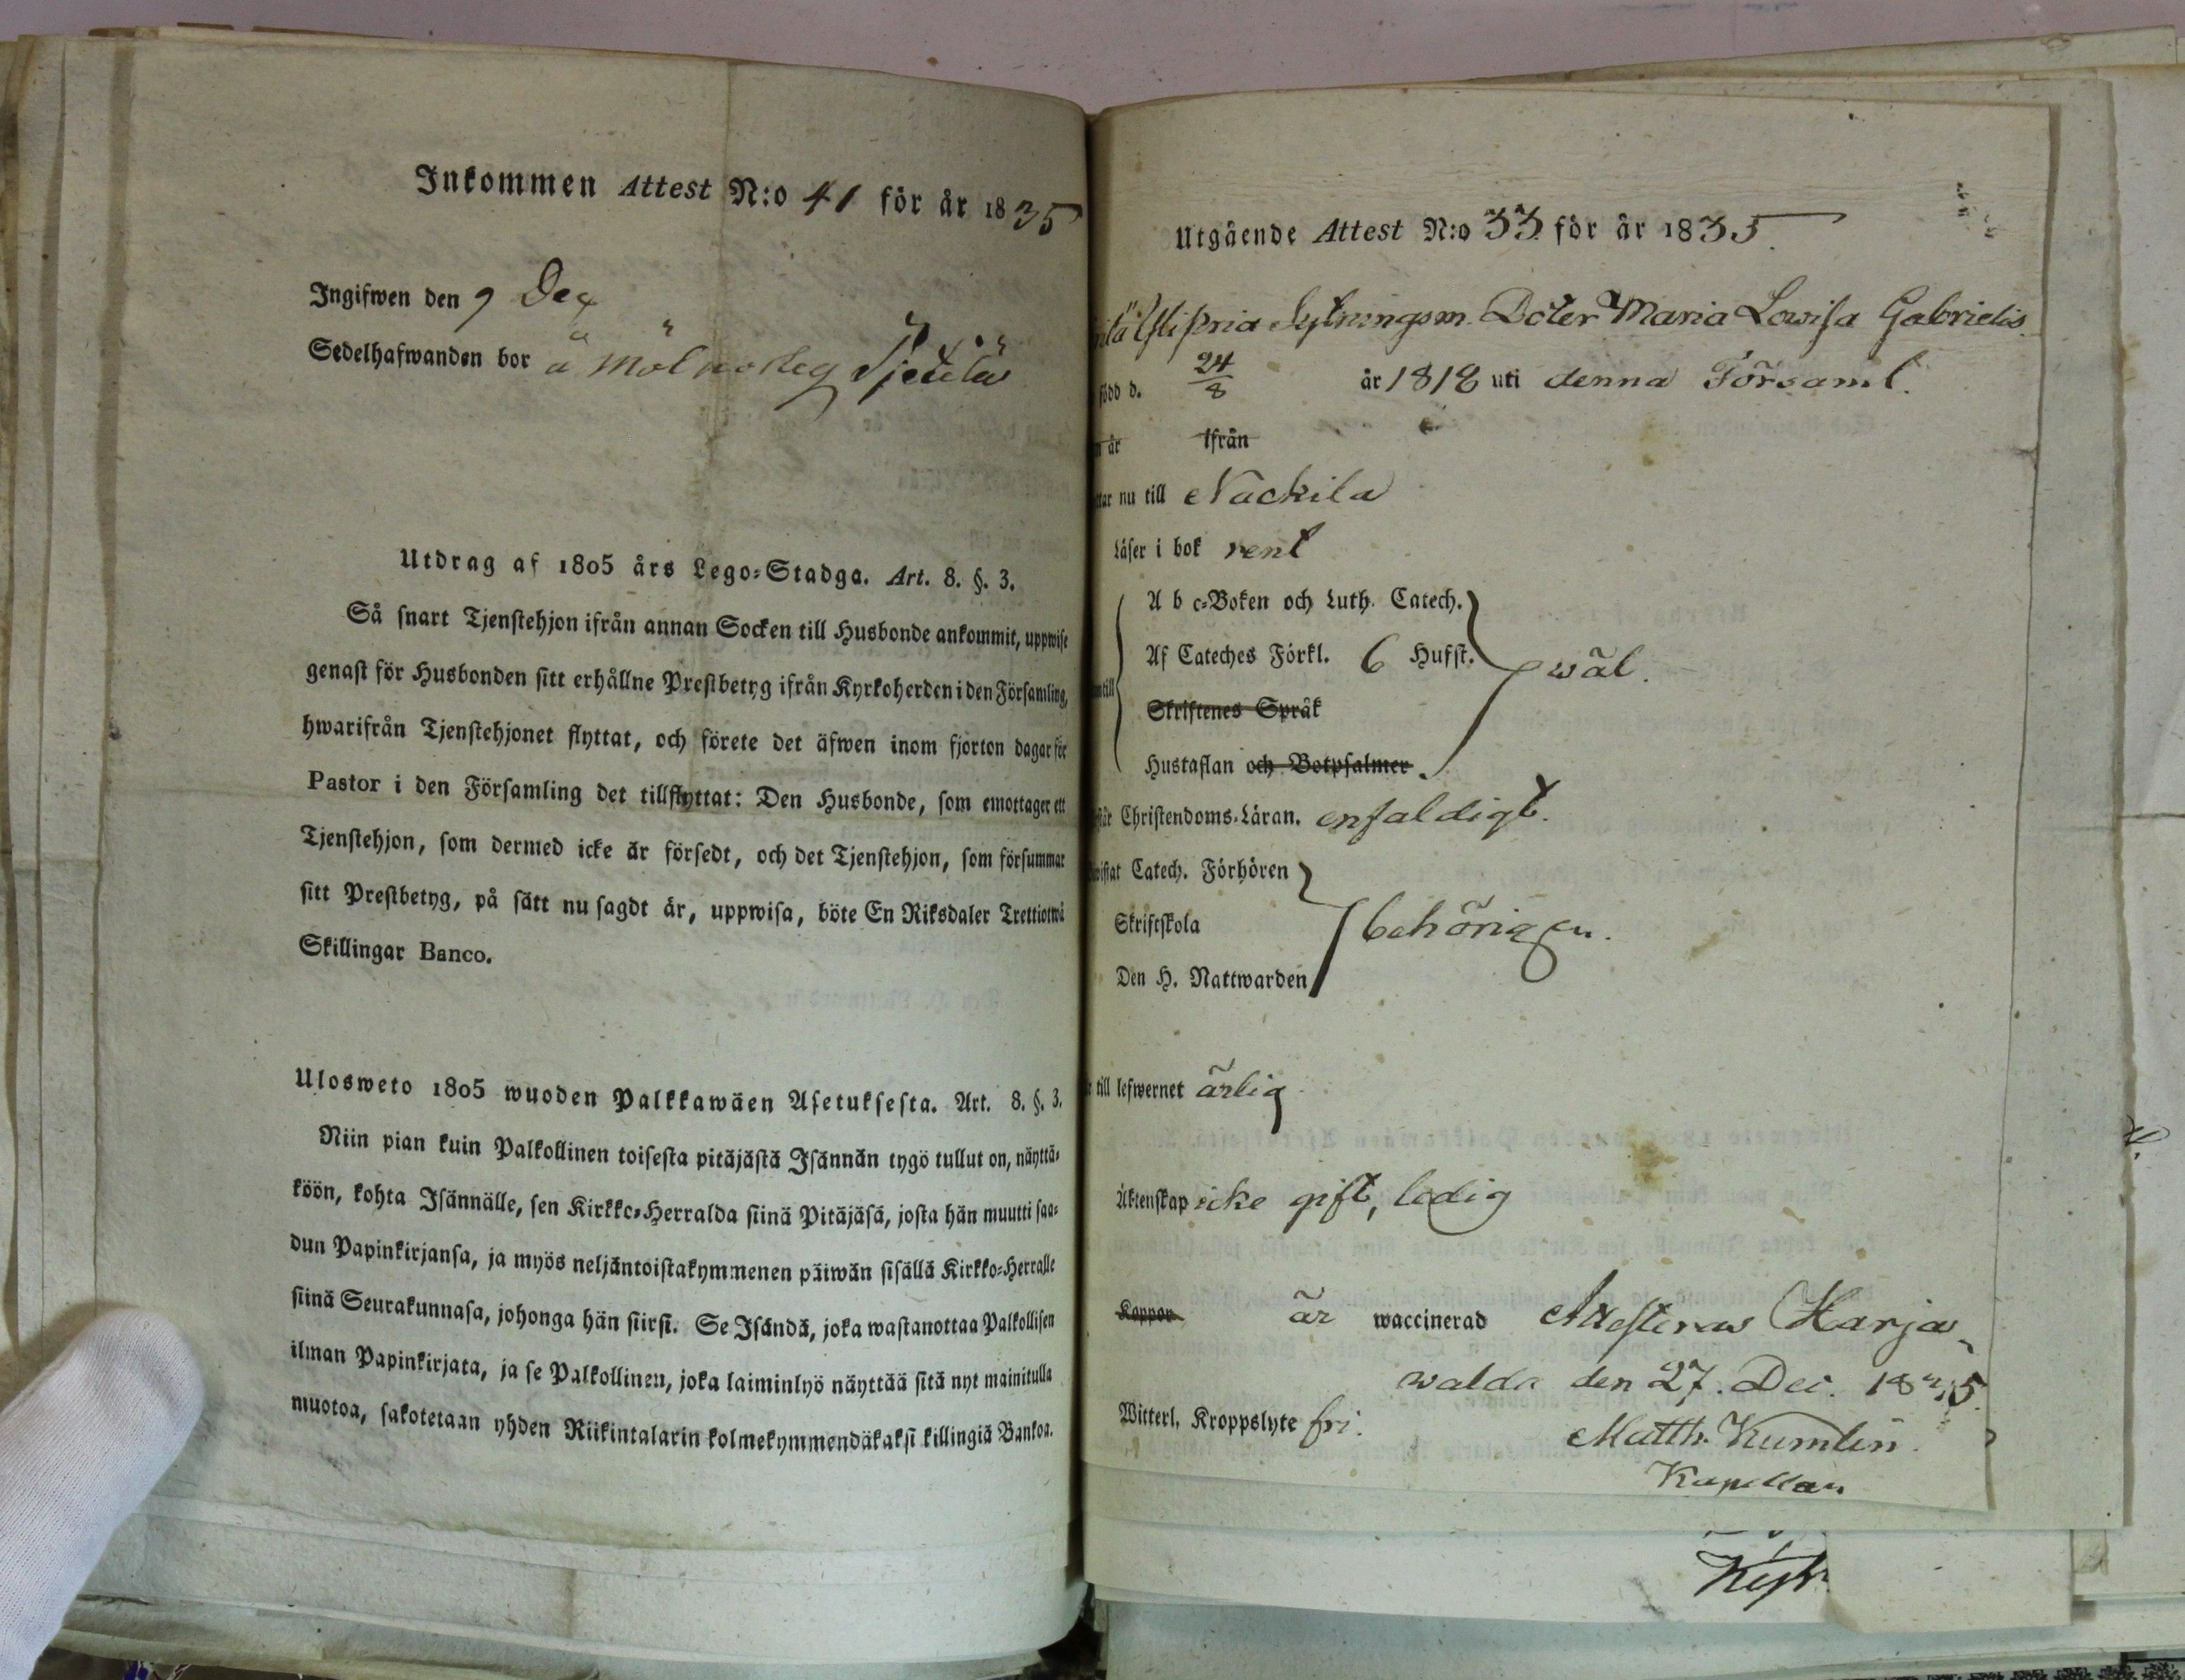 Inkommen Attest N:o 41 för år 1835
Ingifwen den 9 Dec
Sedelhafwanden bor å
Utdrag af 1805 års Lego-Stadga. Art. 8. §. 3.
Så snart Tjenstehjon ifrån annan Socken till Husbonde ankommit, uppwise
genast för Husbonden sitt erhållne Prestbetyg ifrån Kyrkoherden i den Församling,
hwarifrån Tjenstehjonet flyttat, och förete det äfwen inom fjorton dagar för
Pastor i den Församling det tillflyttat: Den Husbonde, som emottager ett
Tjenstehjon, som dermed icke är försedt, och det Tjenstehjon, som försummar
sitt Prestbetyg, på sätt nu sagdt är, uppwisa, böte En Riksdaler Trettiotwå
Skillingar Banco.
Ulosweto 1805 wuoden Palkkawäen Asetuksesta. Art. 8. §. 3.
Niin pian kuin Palkollinen toisesta pitäjästä Isännän tygö tullut on, näyttä-
köön, kohta Isännälle, sen Kirkko-Herralda siinä Pitäjäsä, josta hän muutti saa-
dun Papinkirjansa, ja myös neljäntoistakymmenen päiwän sisällä Kirkko-Herralle
siinä Seurakunnasa, johonga hän siirsi. Se Isändä, joka wastanottaa Palkollisen
ilman Papinkirjata, ja se Palkollinen, joka laiminlyö näyttää sitä nyt mainitulla
muotoa, sakotetaan yhden Riikintalarin kolmekymmendäkaksi killingiä Bankoa.
Utgående Attest N:o 33 för år 1835.
Sytningsm. Doter Maria Lowisa Gabrielis
född d. 24/8 år 1818 uti denna Församl.
år ifrån
nu till Nackila
Läser i bok rent
A b c-Boken och Luth. Catech.
Af Cateches Förkl. 6 Hufst. wäl.
Skriftenes Språk
Hustaflan och Botpsalmer.
Christendoms-Läran. enfaldigt.
Catech. Förhören
Skriftskola behörigen.
Den H. Nattwarden
till lefwernet ärlig
Äktenskap icke gift, ledig
Koppor är waccinerad Attesteras Harja-
walda den 27. Dec. 1835.
Witterl. Kroppslyte fri.
Matth. Kumlin.
Kapellan